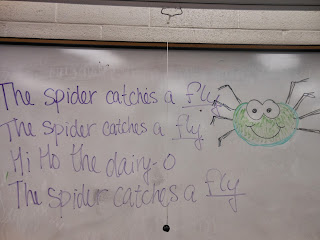 The spider catches a fly
The spider catches a fly
Hi Ho the dairy-O
The spider catches a fly